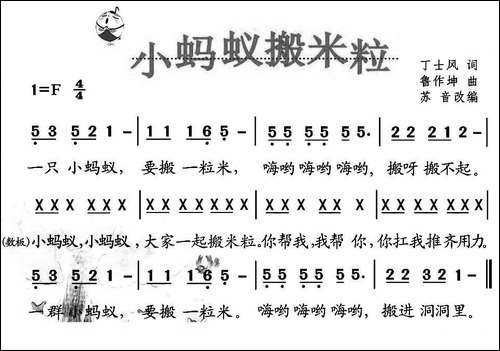 小蚂蚁搬米粒
丁士风 词
鲁作坤 曲
苏 音改编
1=F 4/4
5 3 5 2 1 - | 1 1 1 6 5 - | 5 5 5 5 5 5. | 2 2 2 1 2 - |
一只 小蚂蚁， 要搬 一粒米， 嗨哟 嗨哟 嗨哟， 搬呀 搬不起。
X X X X X X | X X X X X X X | X X X X X X | X X X X X X X |
(数板)小蚂蚁，小蚂蚁，大家一起搬米粒。你帮我，我帮 你，你扛我推齐用力。
5 3 5 2 1 - | 1 1 1 6 5 - | 5 5 5 5 5 5. | 2 2 3 2 1 - |
一群 小蚂蚁， 要搬 一粒米。 嗨哟 嗨哟 嗨哟， 搬进 洞洞里。